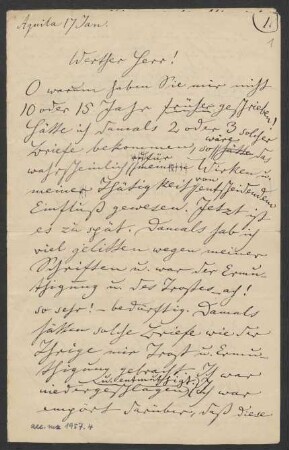 Aquila 17 Jan.
1.
1
Werther Herr!
O warum haben Sie mir nicht
10 oder 15 Jahr früher geschrieben!
Hätte ich damals 2 oder 3 solcher
Briefe bekommen, so wäre das
wahrscheinlich für mein Wirken u.
meiner Thätigkeit von entscheidendem
Einfluß gewesen. Jetzt ist
es zu spät. Damals hab ich
viel gelitten wegen meiner
Schriften u. war der Ermu-
thigung u. des Trostes – ach!
so sehr! – bedürftig. Damals
hätten solche Briefe wie der
Ihrige mir Trost u. Ermu-
thigung gebracht. Ich war
niedergeschlagen u. entmuthigt. Ich war
empört darüber, daß diese
acc. ma 1957.4